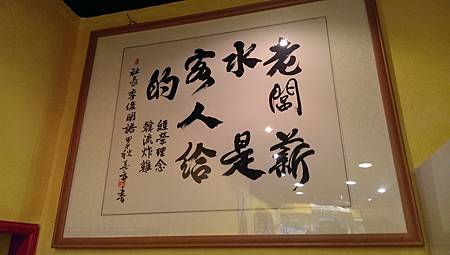 老闆薪
水是
客人給
的
經營理念
韓流炸雞
社長李俊明語甲午秋書